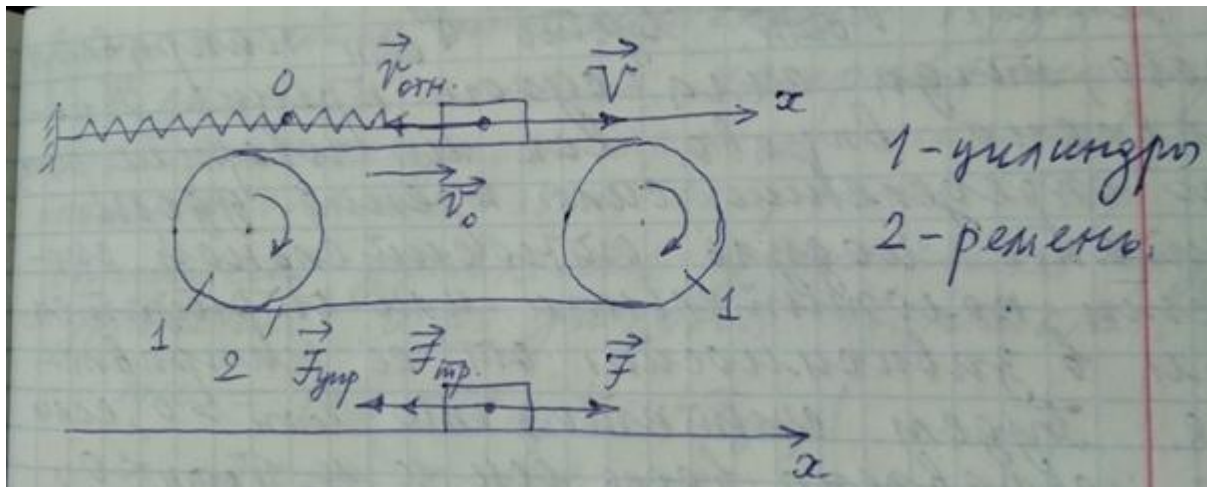 0 v⃗отн. V⃗ x
v⃗₀
1 - цилиндры
2 - ремень.
1 2 1
F⃗упр F⃗тр. F⃗
x